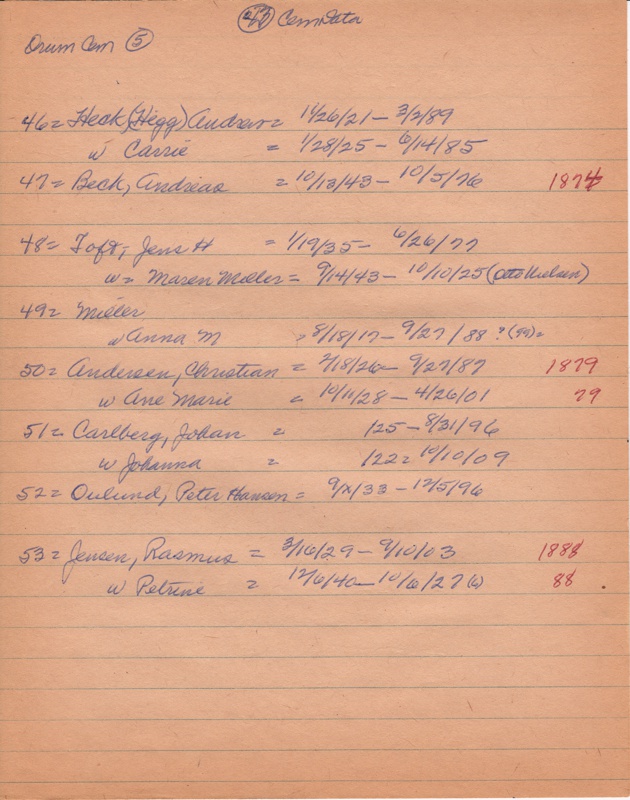 Cem Data
Drum Cem 5
46 = Heck (Hegg) Andrew = 11/26/21 - 3/2/89
w Carrie = 1/28/25 - 6/14/85
47 = Beck, Andreas = 10/13/43 - 10/5/76 1874
48 = Toft, Jens H = 1/19/35 - 6/26/77
w = Maren Moller = 9/14/43 - 10/10/25 (Otto Nielsen)
49 = Miller
w Anna M = 8/18/17 - 9/27/88
50 = Andersen, Christian = 2/18/26 - 9/27/87 1879
w Ane Marie = 10/11/28 - 4/26/01 79
51 = Carlberg, Johan = 125 - 8/31/96
w Johanna = 122 = 10/10/09
52 = Oulund, Peter Hansen = 9/x/33 - 12/5/96
53 = Jensen, Rasmus = 3/16/29 - 9/10/03 1888
w Petrine = 12/6/40 - 10/6/27 88